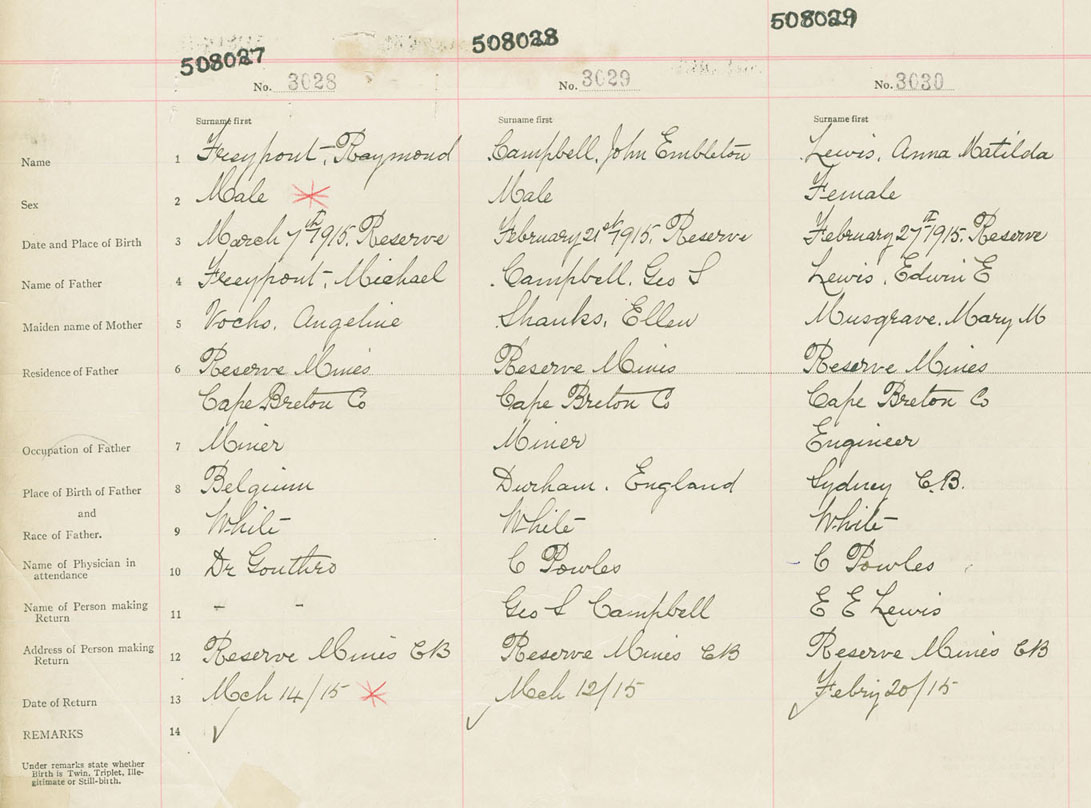 508027 508028 508029
No. 3028 No. 3029 No. 3030
Surname first Surname first Surname first
Name 1 Freypont, Raymond Campbell, John Embleton Lewis, Anna Matilda
Sex 2 Male Male Female
Date and Place of Birth 3 March 7th 1915. Reserve February 21st 1915. Reserve February 27th 1915. Reserve
Name of Father 4 Freypont, Michael Campbell, Geo S Lewis, Edwin E
Maiden name of Mother 5 Vochs, Angeline Shanks, Ellen Musgrave, Mary M
Residence of Father 6 Reserve Mines Reserve Mines Reserve Mines
Cape Breton Co Cape Breton Co Cape Breton Co
Occupation of Father 7 Miner Miner Engineer
Place of Birth of Father 8 Belgium Durham. England Sydney C.B.
and
Race of Father. 9 White White White
Name of Physician in attendance 10 Dr Gouthro C Powles C Powles
Name of Person making Return 11 - - Geo S Campbell E E Lewis
Address of Person making Return 12 Reserve Mines CB Reserve Mines CB Reserve Mines CB
Date of Return 13 Mch 14/15 Mch 12/15 Febry 20/15
REMARKS 14
Under remarks state whether
Birth is Twin, Triplet, Ille-
gitimate or Still-birth.